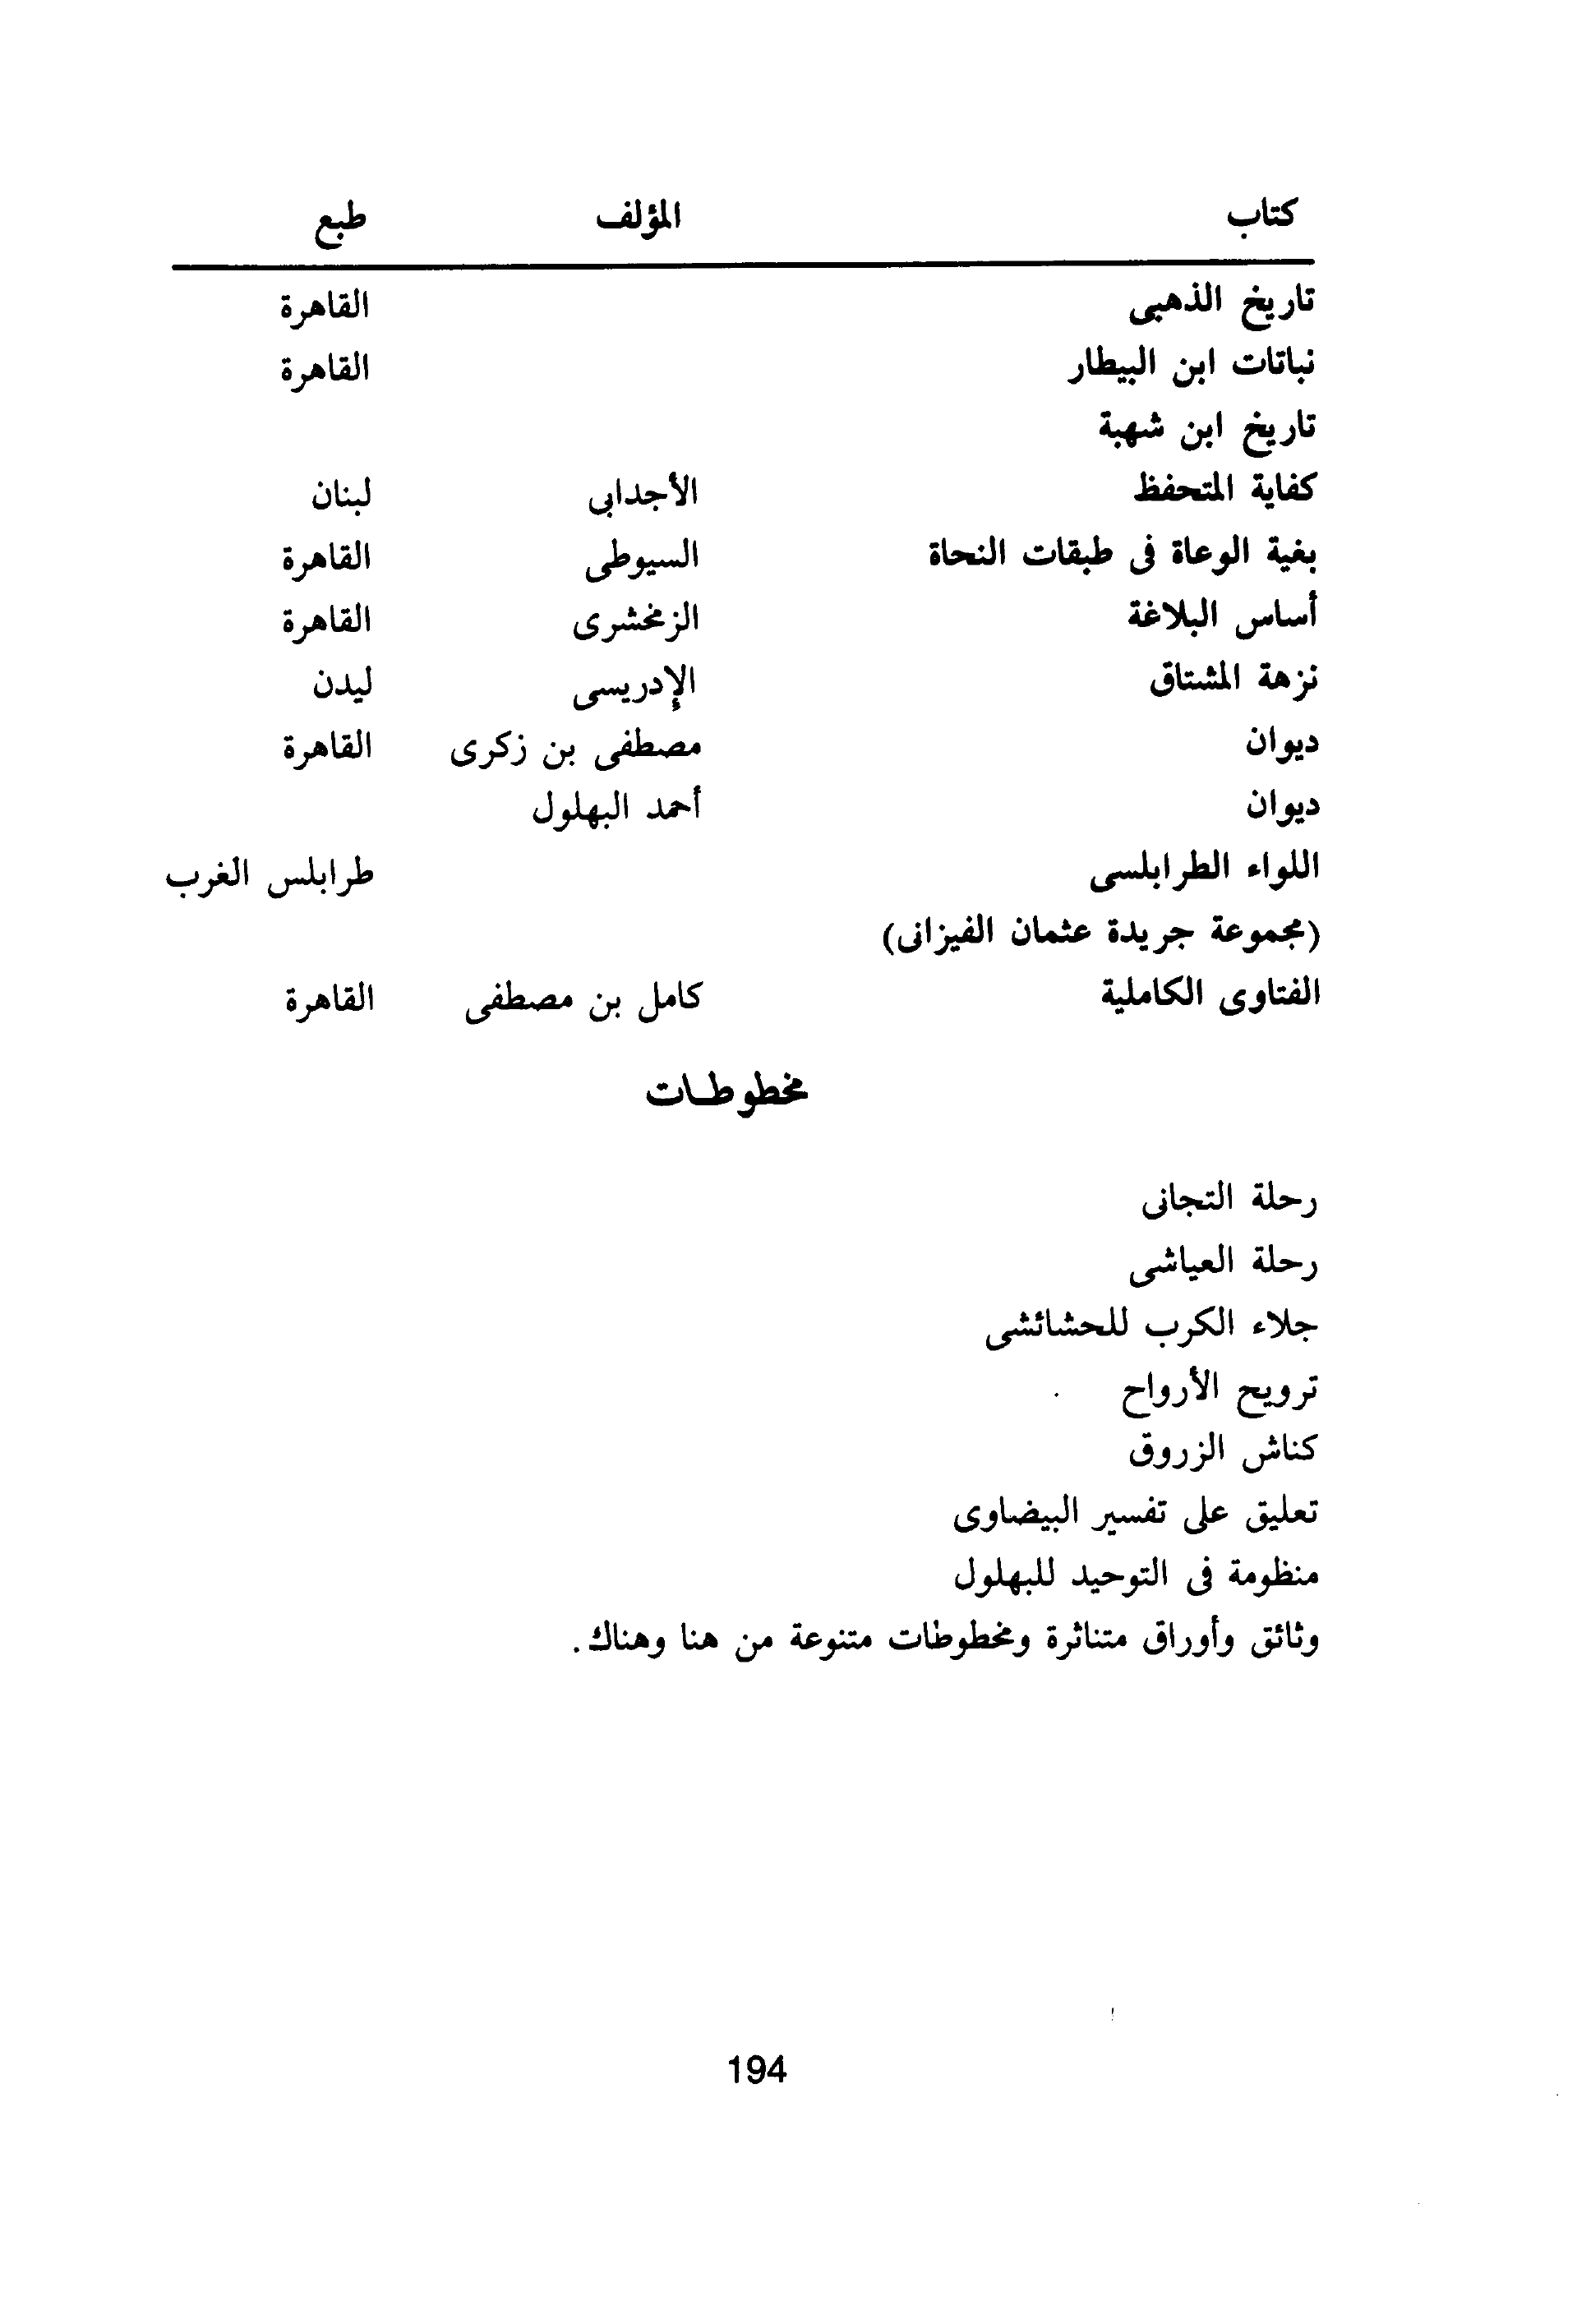 كتاب المؤلف طبع
تاريخ الذهبى القاهرة
نباتات ابن البيطار القاهرة
تاريخ ابن شهبة
كفاية المتحفظ الأجدابى لبنان
بغية الوعاة فى طبقات النحاة السيوطى القاهرة
أساس البلاغة الزمخشرى القاهرة
نزهة المشتاق الإدريسى ليدن
ديوان مصطفى بن زكرى القاهرة
ديوان أحمد البهلول
اللواء الطرابلسى طرابلس الغرب
(مجموعة جريدة عثمان الفيزانى)
الفتاوى الكاملية كامل بن مصطفى القاهرة
مخطوطـات
رحلة التجانى
رحلة العياشى
جلاء الكرب للحشائشى
ترويح الأرواح
كناش الزروق
تعليق على تفسير البيضاوى
منظومة فى التوحيد للبهلول
وثائق وأوراق متناثرة ومخطوطات متنوعة من هنا وهناك.
194